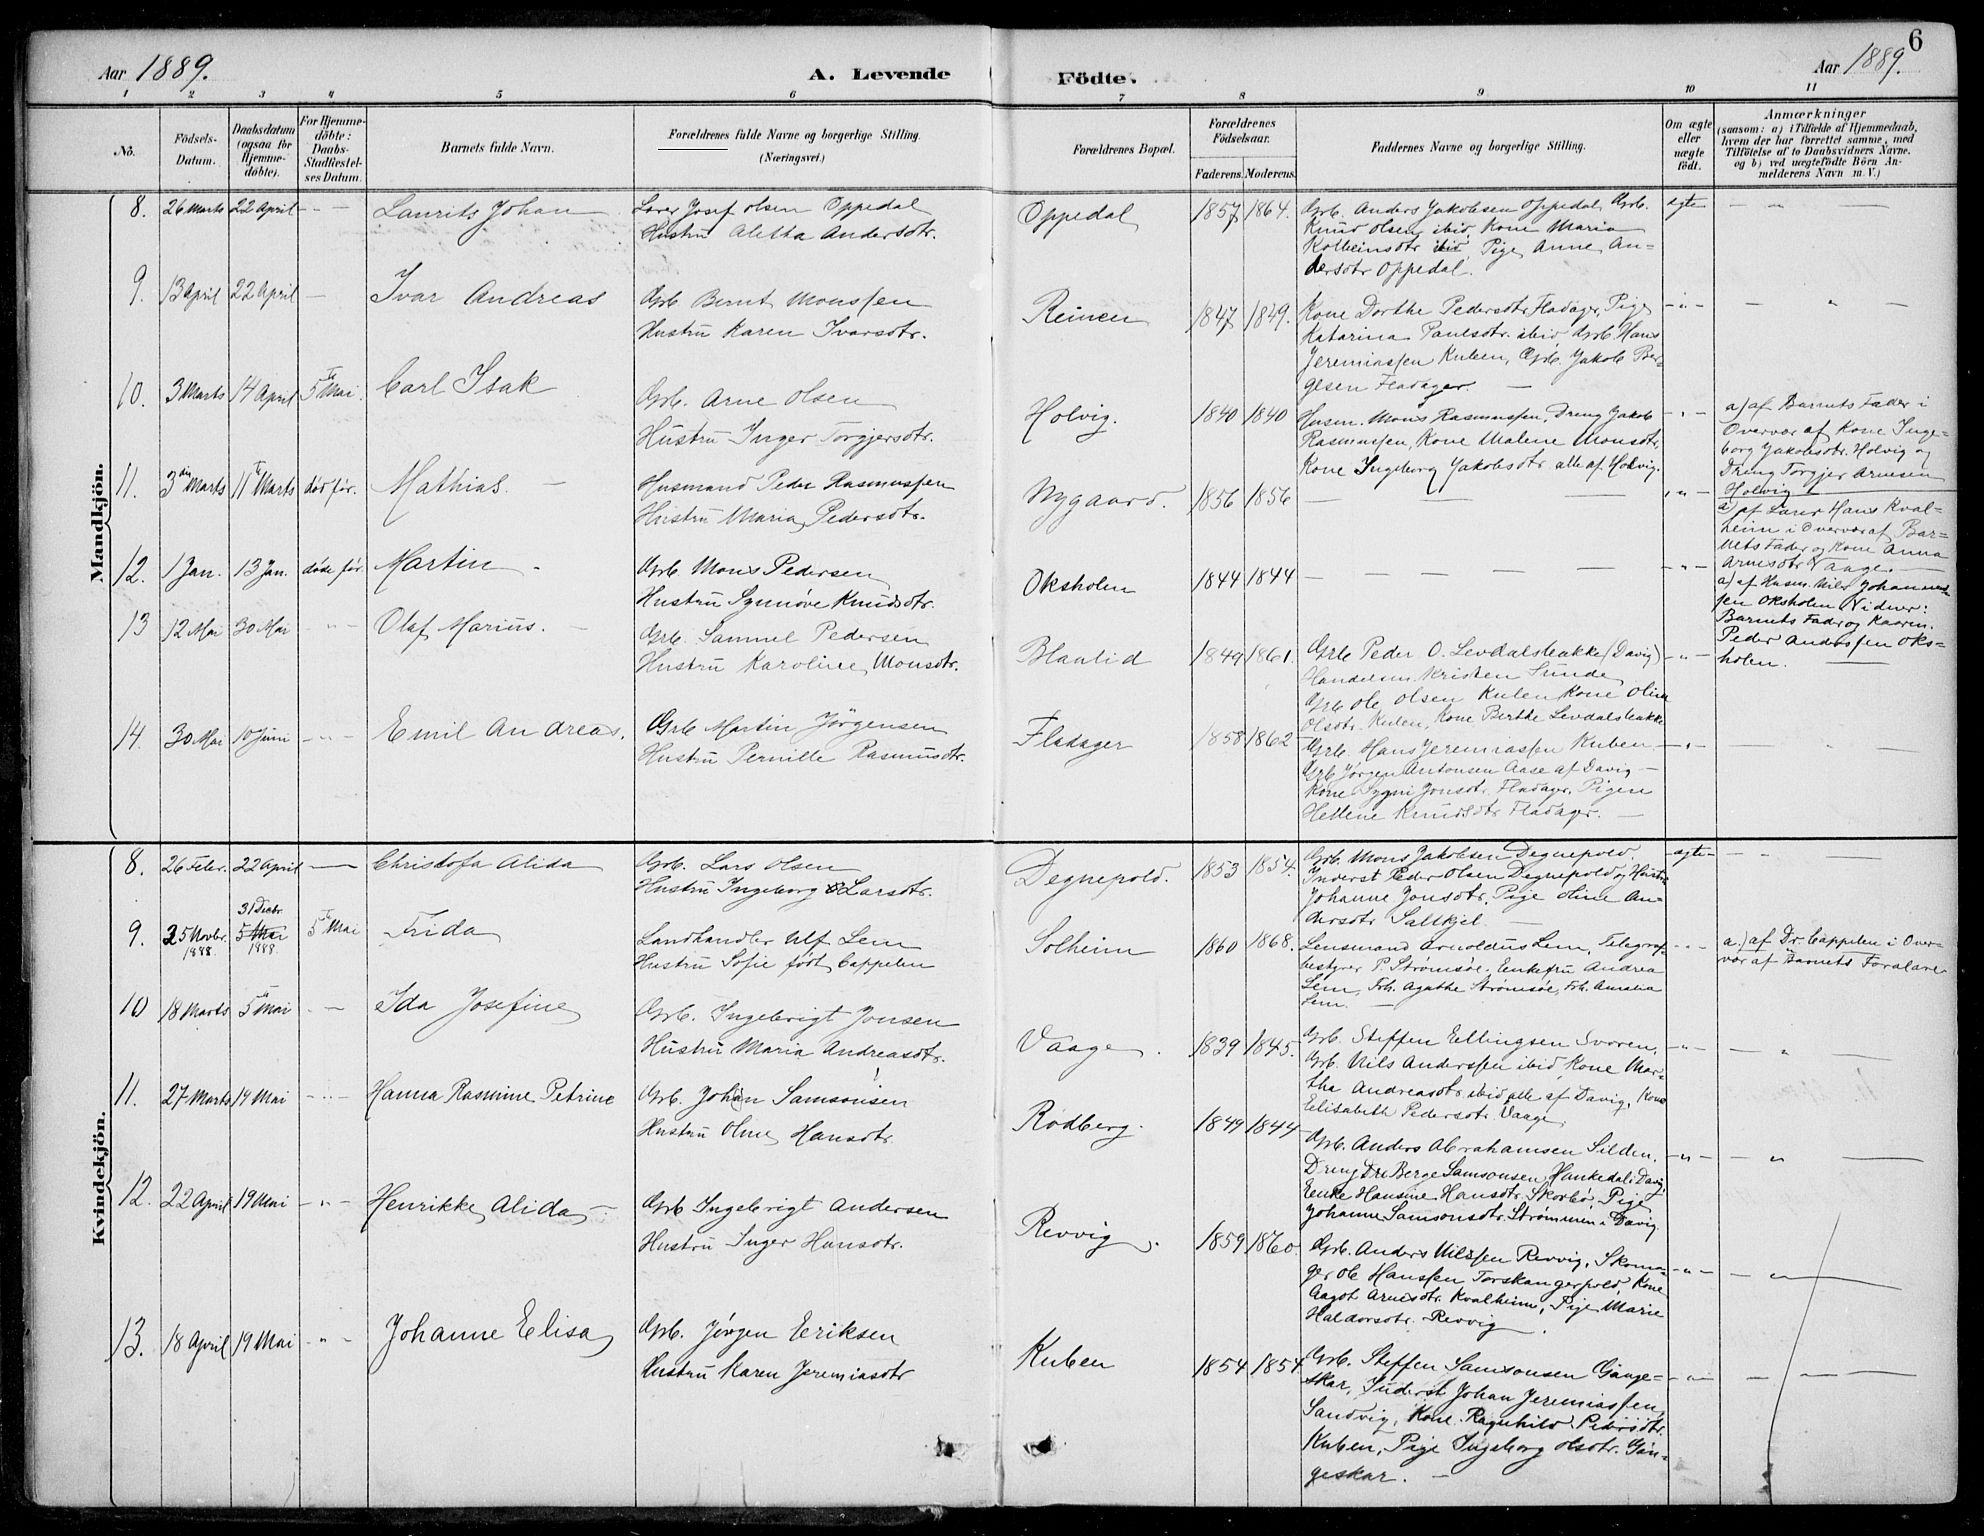 6
Aar 1889. A. Levende Fødte. Aar 1889.
1 2 3 4 5 6 7 8 9 10 11
No.
Födsels-
Datum.
Daabsdatum
(ogsaa for
Hjemme-
döbte).
For Hjemme-
döbte:
Daabs-
Stadfæstel-
ses Datum.
Barnets fulde Navn.
Forældrenes fulde Navne og borgerlige Stilling.
(Næringsvei.)
Forældrenes Bopæl.
Forældrenes
Födselsaar.
Faderens. Moderens.
Faddernes Navne og borgerlige Stilling.
Om ægte
eller
uægte
födt.
Anmærkninger
(saasom: a) i Tilfælde af Hjemmedaab,
hvem der har forrettet samme, med
Tilföielse af to Daabsvidners Navne,
og b) ved uægtefödte Börn An-
melderens Navn m. V.)
Mandkjön.
8. 26 Marts 22 April - - Laurits Johan
Lærer Josef Olsen Oppedal
Hustru Aletha Andersdtr.
Oppedal 1857 1864.
Grb. Anders Jakobsen Oppedal, Grb.
Knud Olsen ibid, Kone Maria
Kolbeinsdtr ibid, Pige Anne An-
dersdtr Oppedal.
ægte - " -
9. 13 April 22 April - Ivar Andreas
Grb. Bernt Monssen
Hustru Karen Ivarsdtr.
Reinen 1847 1849.
Kone Dorthe Pedersdtr Fladager, Pige
Katarina Paulsdtr. ibid, Grb. Hans
Jeremiassen Kuben, Grb. Jakob Bør-
gesen Fladager. -
- " - - " -
10. 3 Marts 14 April 5te Mai. Carl Isak
Grb. Arne Olsen
Hustru Inger Torgjersdtr.
Holvig. 1840 1840
Husm. Mons Rasmussen, Dreng Jakob
Rasmussen, Kone Malene Monsdtr,
Kone Ingeborg Jakobsdtr alle af Holvig.
- " -
a) af Barnets Fader i
Overvær af Kone Inge-
borg Jakobsdtr. Holvig og
Dreng Torgjer Arnesen
Holvig
11. 3die Marts 11te Marts död för. Mathias. -
Husmand Peder Rasmussen
Hustru Maria Pedersdtr.
Nygaard. 1856 1856 - - - - " -
a) af Lærer Hans Kval-
heim i Overvær af Bar-
nets Fader og Kone Anna
Arnesdtr Vaage. -
12. 1 Jan. 13 Jan. döde för. Martin -
Grb. Mons Pedersen
Hustru Synnöve Knudsdtr.
Oksholen 1844 1844 - - - - " -
a) af Husm. Nils Johannes-
sen Oksholen Vidner:
Barnets Fader og
Peder Anderssen Oks-
holen. -
13 12 Mai 30 Mai - " - Olaf Marius. -
Grb. Samuel Pedersen
Hustru Karoline Monsdtr.
Blaalid 1849 1861.
Grb Peder O. Levdalsbakke (Davig)
Handelsm. Kristen Sunde
Grb Ole Olsen Kuben Kone Oline
Olsdtr. Kuben, Kone Birthe Levdalsbakke
- " -
14. 30 Mai 10 Juni - " - Emil Andreas.
Grb Martin Jörgensen
Hustru Pernille Rasmusdtr.
Fladager 1858 1862
Grb. Hans Jeremiassen Kuben
Grb Jörgen Antonsen Aase af Davig -
Kone Sygni Jonsdtr. Fladager, Pigen
Hellene Knudsdtr Fladager. -
- " - - " -
Kvindekjön.
8. 26 Febr. 22 April - Christofa Alida
Grb. Lars Olsen
Hustru Ingeborg Larsdtr.
Degnepold. 1853 1854.
Grb. Mons Jakobsen Degnepold.
Inderst Peder Olsen Degnepold og Hustru
Johanne Jonsdtr. Pige Oline An-
dersdtr Saltkjel. -
ægte - " -
9. 25 Novbr. 1888 31 Decbr. 5 Mai 1888 5te Mai Frida
Landhandler Ulf Lem
Hustru Sofie födt Cappelen
Solheim 1860 1868.
Lensmand Arnoldus Lem, Telegraf-
bestyrer P. Strömsöe. Enkefru Andrea
Lem, Frk. Agathe Strömsöe, Frk. Amalia
Lem. -
- " -
a.) af Dr. Cappelen i Over-
vær af Barnets Forældre
10 18 Marts 5te Mai - - Ida Josefine
Grb. Ingebrigt Jonsen
Hustru Maria Andreasdtr.
Vaage. 1839 1845.
Grb. Steffen Ellingsen Svoren,
Grb. Nils Anderssen ibid, Kone Mar-
tha Andreasdtr ibid alle af Davig, Kone
Elisabeth Pedersdtr. Vaage.
- " - - " -
11. 27 Marts 19 Mai - " - Hanna Rasmine Petrine
Grb. Johan Samsonsen
Hustru Oline Hansdtr.
Rödberg. 1849 1844
Grb. Anders Abrahamsen Silden,
Dreng Berge Samsonsen Hankedal i Davig,
Enke Hansine Hansdtr. Skorbö, Pige
Johanne Samsonsdtr. Strömmen i Davig
- " - - " -
12. 22 April 19 Mai - " - Henrikke Alida -
Grb Ingebrigt Andersen
Hustru Inger Hansdtr.
Revvig. 1859 1860
Grb. Anders Nilssen Revvig, Skoma-
ger Ole Hanssen Torskangerpold, Kone
Aagot Arnesdtr. Kvalheim, Pige Marie
Haldorsdtr. Revvig.
- " - - " -
13. 18 April 19 Mai - " - Johanne Elisa
Grb. Jörgen Eriksen
Hustru Karen Jeremiasdtr
Kuben 1854 1854
Grb. Steffen Samsonsen Gange-
skar, Inderst Johan Jeremiassen,
Sandvig, Kone Ragnhild Pedersdtr.
Kuben, Pige Ingeborg Olsdtr. Gan-
geskar. -
- " - - " -